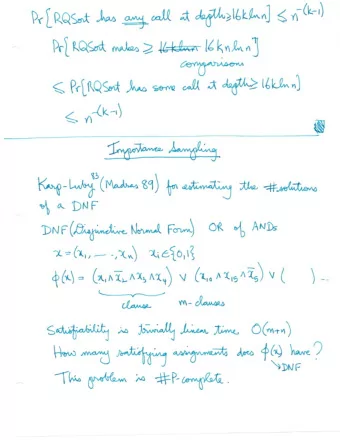 Pr[RQSort has any call at depth ≥ 16k ln n] ≤ n^{-(k-1)}
Pr[RQSort makes ≥ 16k ln n 16 k n ln n
comparisons
≤ Pr[RQSort has some call at depth ≥ 16k ln n]
≤ n^{-(k-1)}
Importance Sampling
Karp-Luby 83 (Madras 89) for estimating the #solutions
of a DNF
DNF (Disjunctive Normal Form) OR of ANDs
x = (x₁, ..., xₙ) xᵢ ∈ {0,1}
φ(x) = (x₁ ∧ x̄₂ ∧ x₃ ∧ x₄) ∨ (x₁₀ ∧ x₁₅ ∧ x̄₅) ∨ ( ) ...
clause m-clauses
Satisfiability is trivially linear time O(m+n)
How many satisfying assignments does φ(x) have?
DNF
This problem is #P-complete.